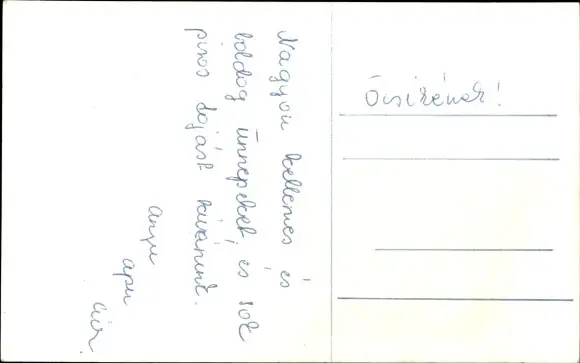 Nagyon kellemes és
boldog ünnepeket, és sok
piros tojást kívánunk.
anyu
apu
Öcsikének!